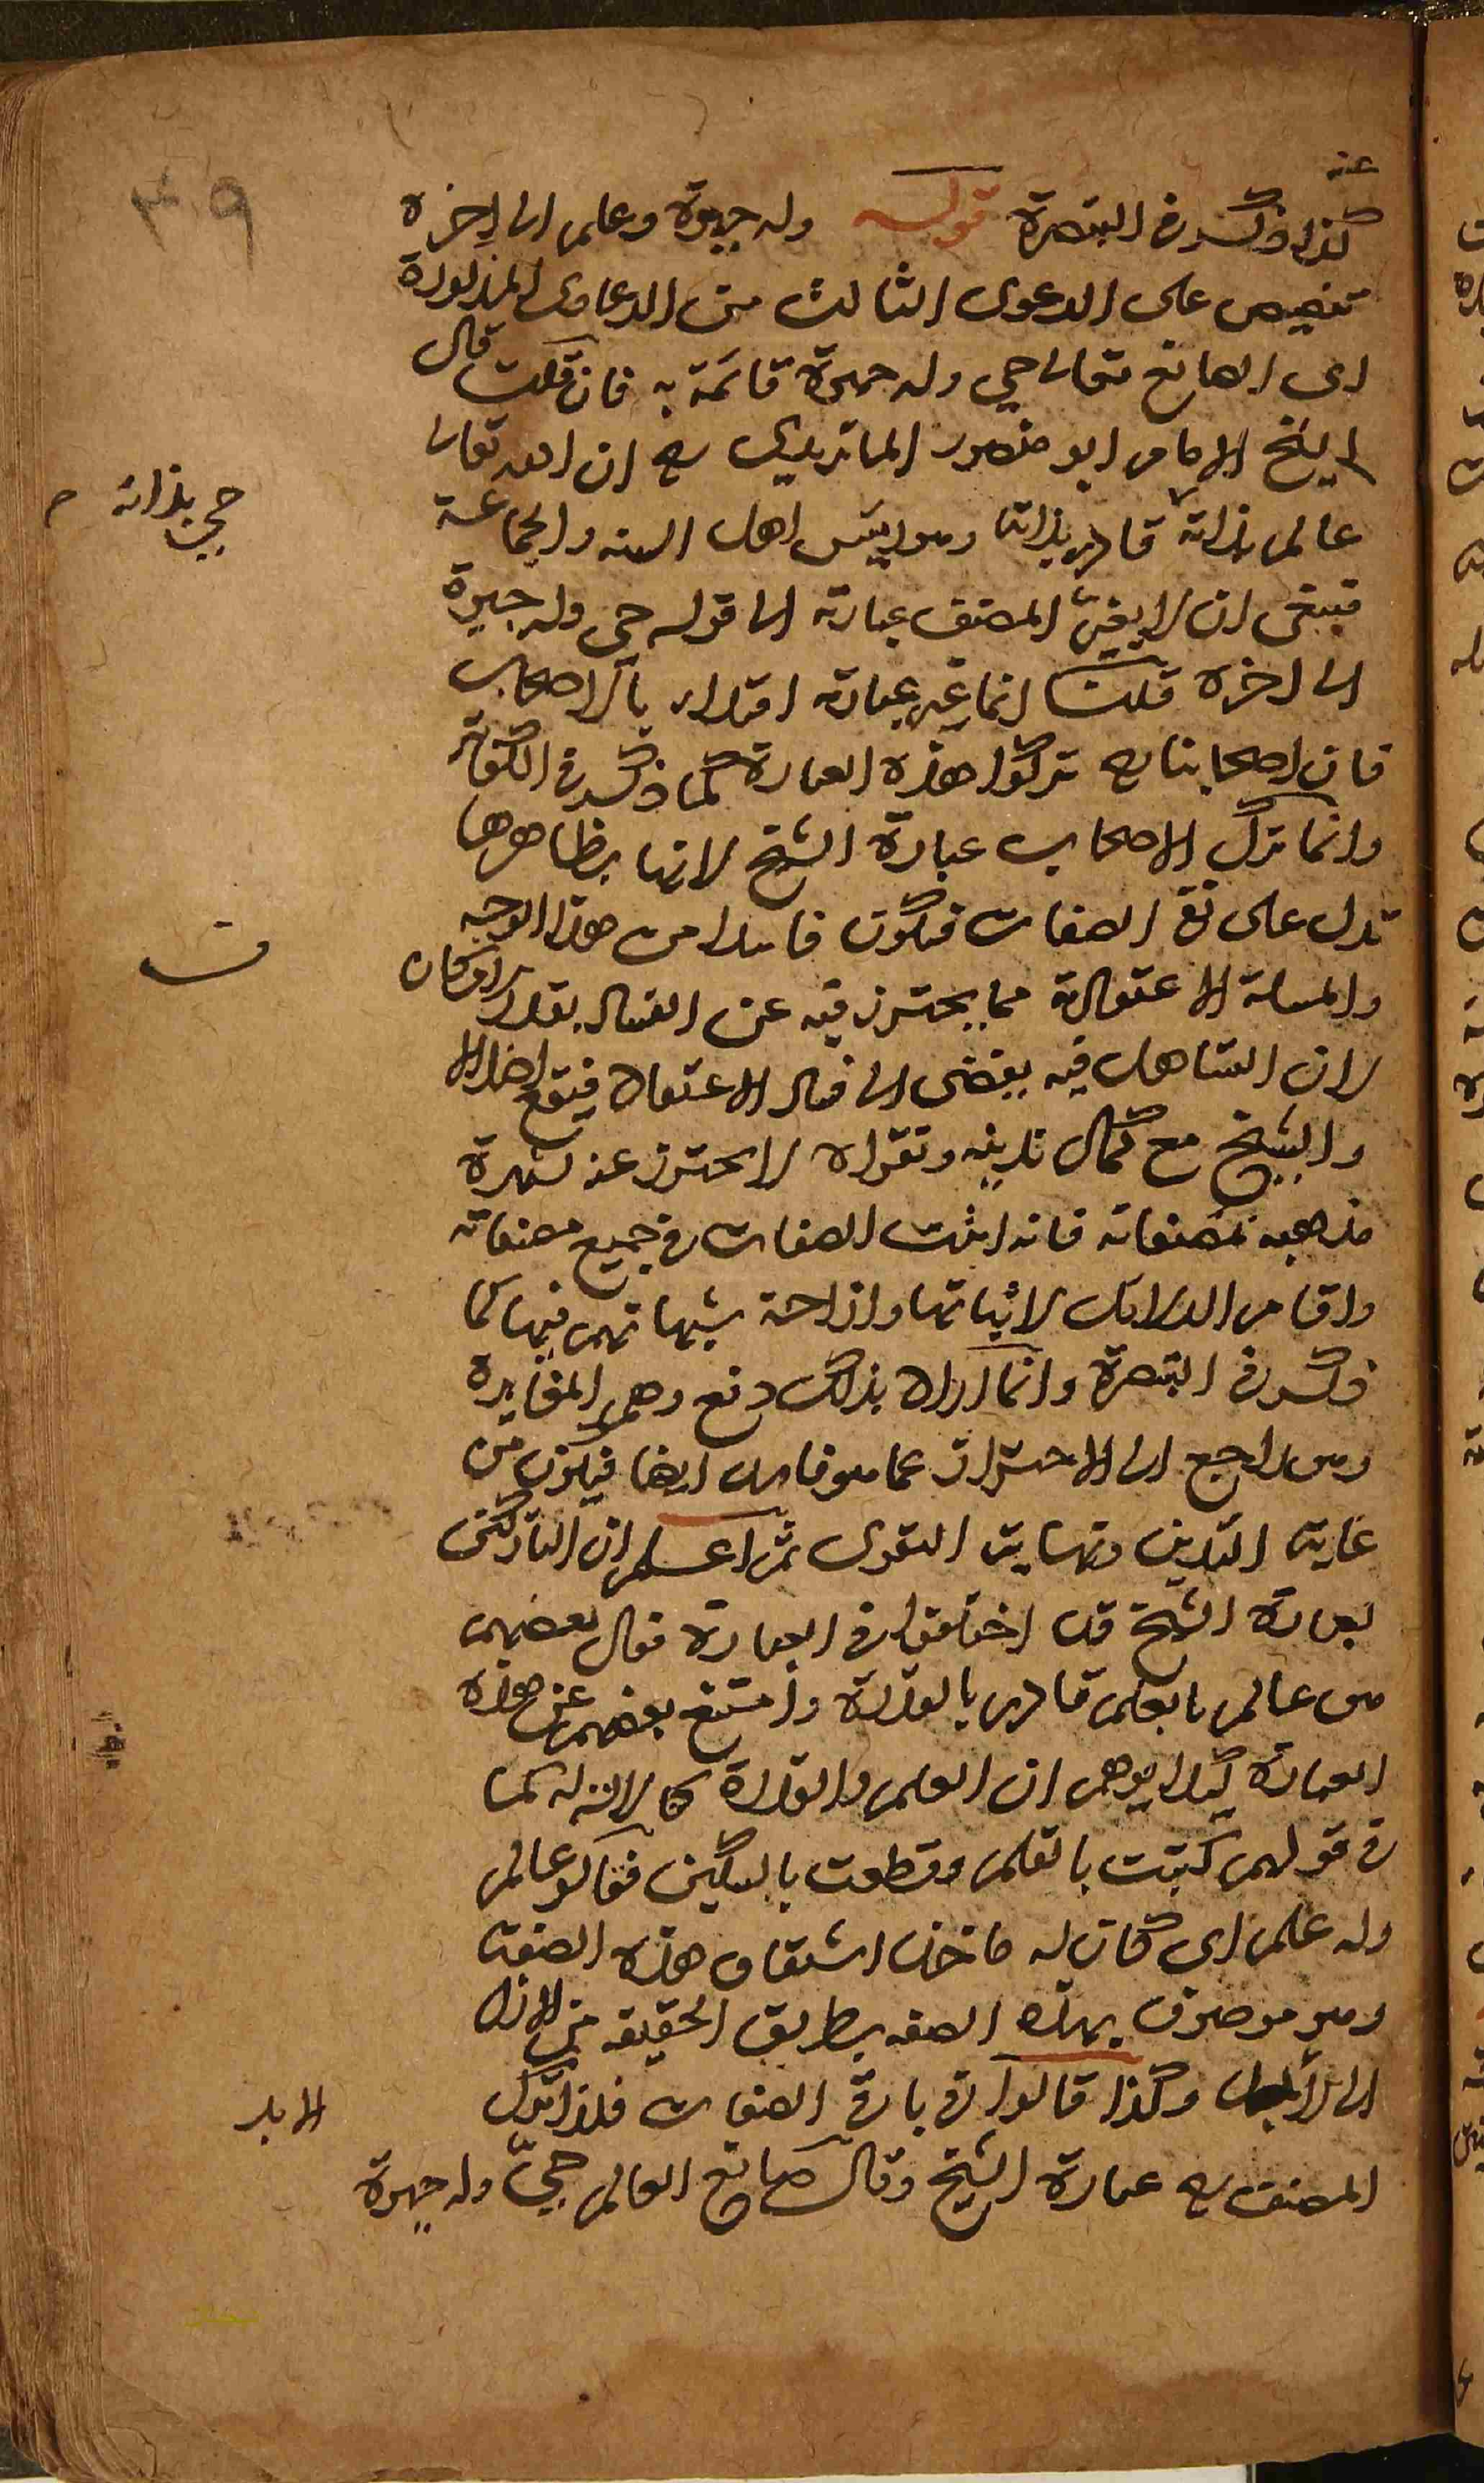 عنه
٣٩
كذا ذكر في التبصرة قوله وله حيوة وعلم الى اخره
تنصيص على الدعوى الثالث من الدعاوى المذكورة
اى الصانع تعالى حي وله حيوة قائمة به فان قلت قال
الشيخ الامام ابو منصور الماتريدي رح ان الله تعالى
عالم بذاته قادر بذاته وهو رئيس اهل السنه والجماعة
حي بذاته م
فينبغي ان لا يغيّر المصنف عبارته الى قوله حي وله حيوة
الى اخره قلت انما غير عبارته اقتداء بالاصحاب
فان اصحابنا رح تركوا هذه العبارة كما ذكر في الكفاية
وانما ترك الاصحاب عبارة الشيخ لانها بظاهرها
تدل على نفي الصفات فيكون فاسدا من هذا الوجه
والمسئلة الاعتقادية مما يحترز فيه عن الفساد بقدر الامكان
لان التساهل فيه يفضى الى فساد الاعتقاد فيقع اضلالا
والشيخ مع كمال تدينه وتقواه لا يحترز عنه لشهرة
مذهبه بمصنفاته فانه اثبت الصفات في جميع مصنفاته
واقام الدلائل لاثباتها وازاحة شبهاتهم فيها كما
ذكر في التبصرة وانما اراد بذلك دفع وهم المغايرة
وهو راجع الى الاحتراز عما هو فاسد ايضا فيكون من
غاية التدين ونهاية التقوى ثم اعلم ان التاركين
لعبارة الشيخ قد اختلفوا في العبارة فقال بعضهم
هو عالم بالعلم قادر بالقدرة وامتنع بعضهم عن هذه
العبارة كيلا يوهم ان العلم والقدرة كالالة له كما
في قولهم كتبت بالقلم وقطعت بالسكين فقالوا عالم
وله علم اى كان له ماخذ اشتقاق هذه الصفة
وهو موصوف بهذه الصفه بطريق الحقيقه من الازل
الى الابد وكذا قالوا في باقي الصفات فلذا ترك
الابد
المصنف رح عبارة الشيخ وقال صانع العالم حيّ وله حيوة